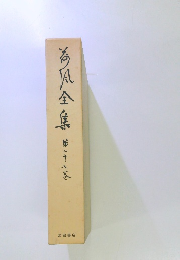 荷風全集
第二十八巻
岩波書店